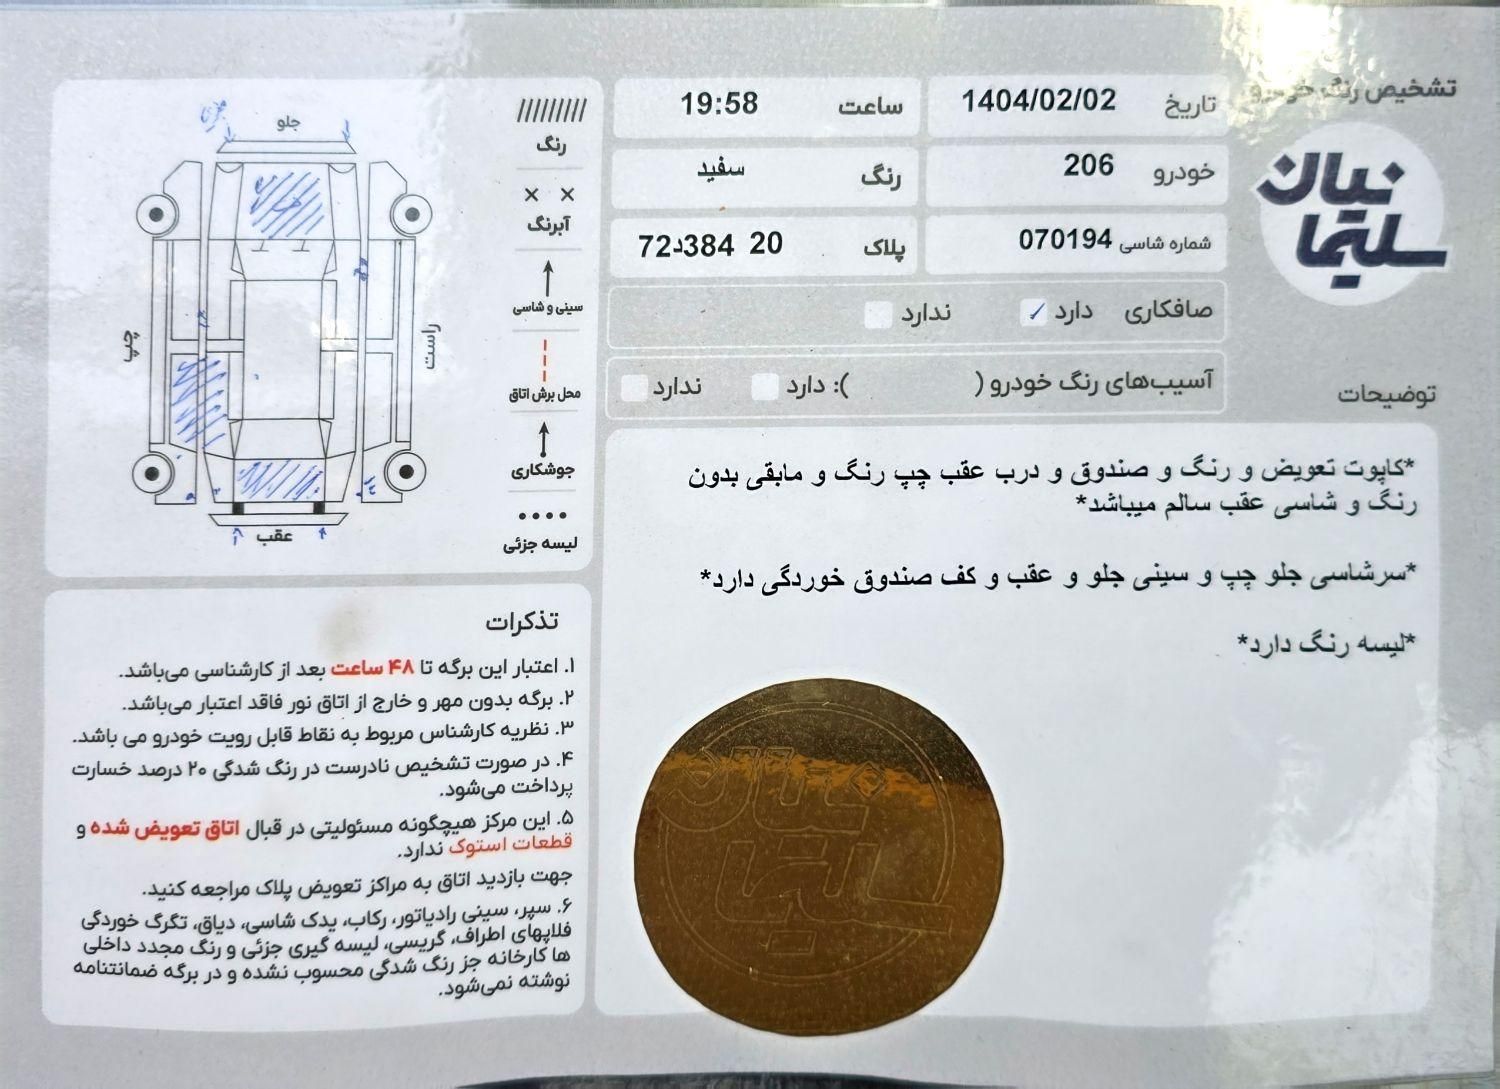 تشخیص رنگ خودرو
سلیمانیان
تاریخ 1404/02/02
ساعت 19:58
خودرو 206
رنگ سفید
شماره شاسی 070194
پلاک 20 384د72
صافکاری دارد ✓ ندارد
آسیب‌های رنگ خودرو ( ): دارد ندارد
توضیحات
*کاپوت تعویض و رنگ و صندوق و درب عقب چپ رنگ و مابقی بدون
رنگ و شاسی عقب سالم میباشد*
*سرشاسی جلو چپ و سینی جلو و عقب و کف صندوق خوردگی دارد*
*لیسه رنگ دارد*
جلو
راست
چپ
عقب
رنگ
× ×
آبرنگ
سینی و شاسی
محل برش اتاق
جوشکاری
لیسه جزئی
تذکرات
۱. اعتبار این برگه تا ۴۸ ساعت بعد از کارشناسی می‌باشد.
۲. برگه بدون مهر و خارج از اتاق نور فاقد اعتبار می‌باشد.
۳. نظریه کارشناس مربوط به نقاط قابل رویت خودرو می باشد.
۴. در صورت تشخیص نادرست در رنگ شدگی ۲۰ درصد خسارت
پرداخت می‌شود.
۵. این مرکز هیچگونه مسئولیتی در قبال اتاق تعویض شده و
قطعات استوک ندارد.
جهت بازدید اتاق به مراکز تعویض پلاک مراجعه کنید.
۶. سپر، سینی رادیاتور، رکاب، یدک شاسی، دیاق، تگرگ خوردگی
فلاپهای اطراف، گریسی، لیسه گیری جزئی و رنگ مجدد داخلی
ها کارخانه جز رنگ شدگی محسوب نشده و در برگه ضمانتنامه
نوشته نمی‌شود.
سلیمانیان